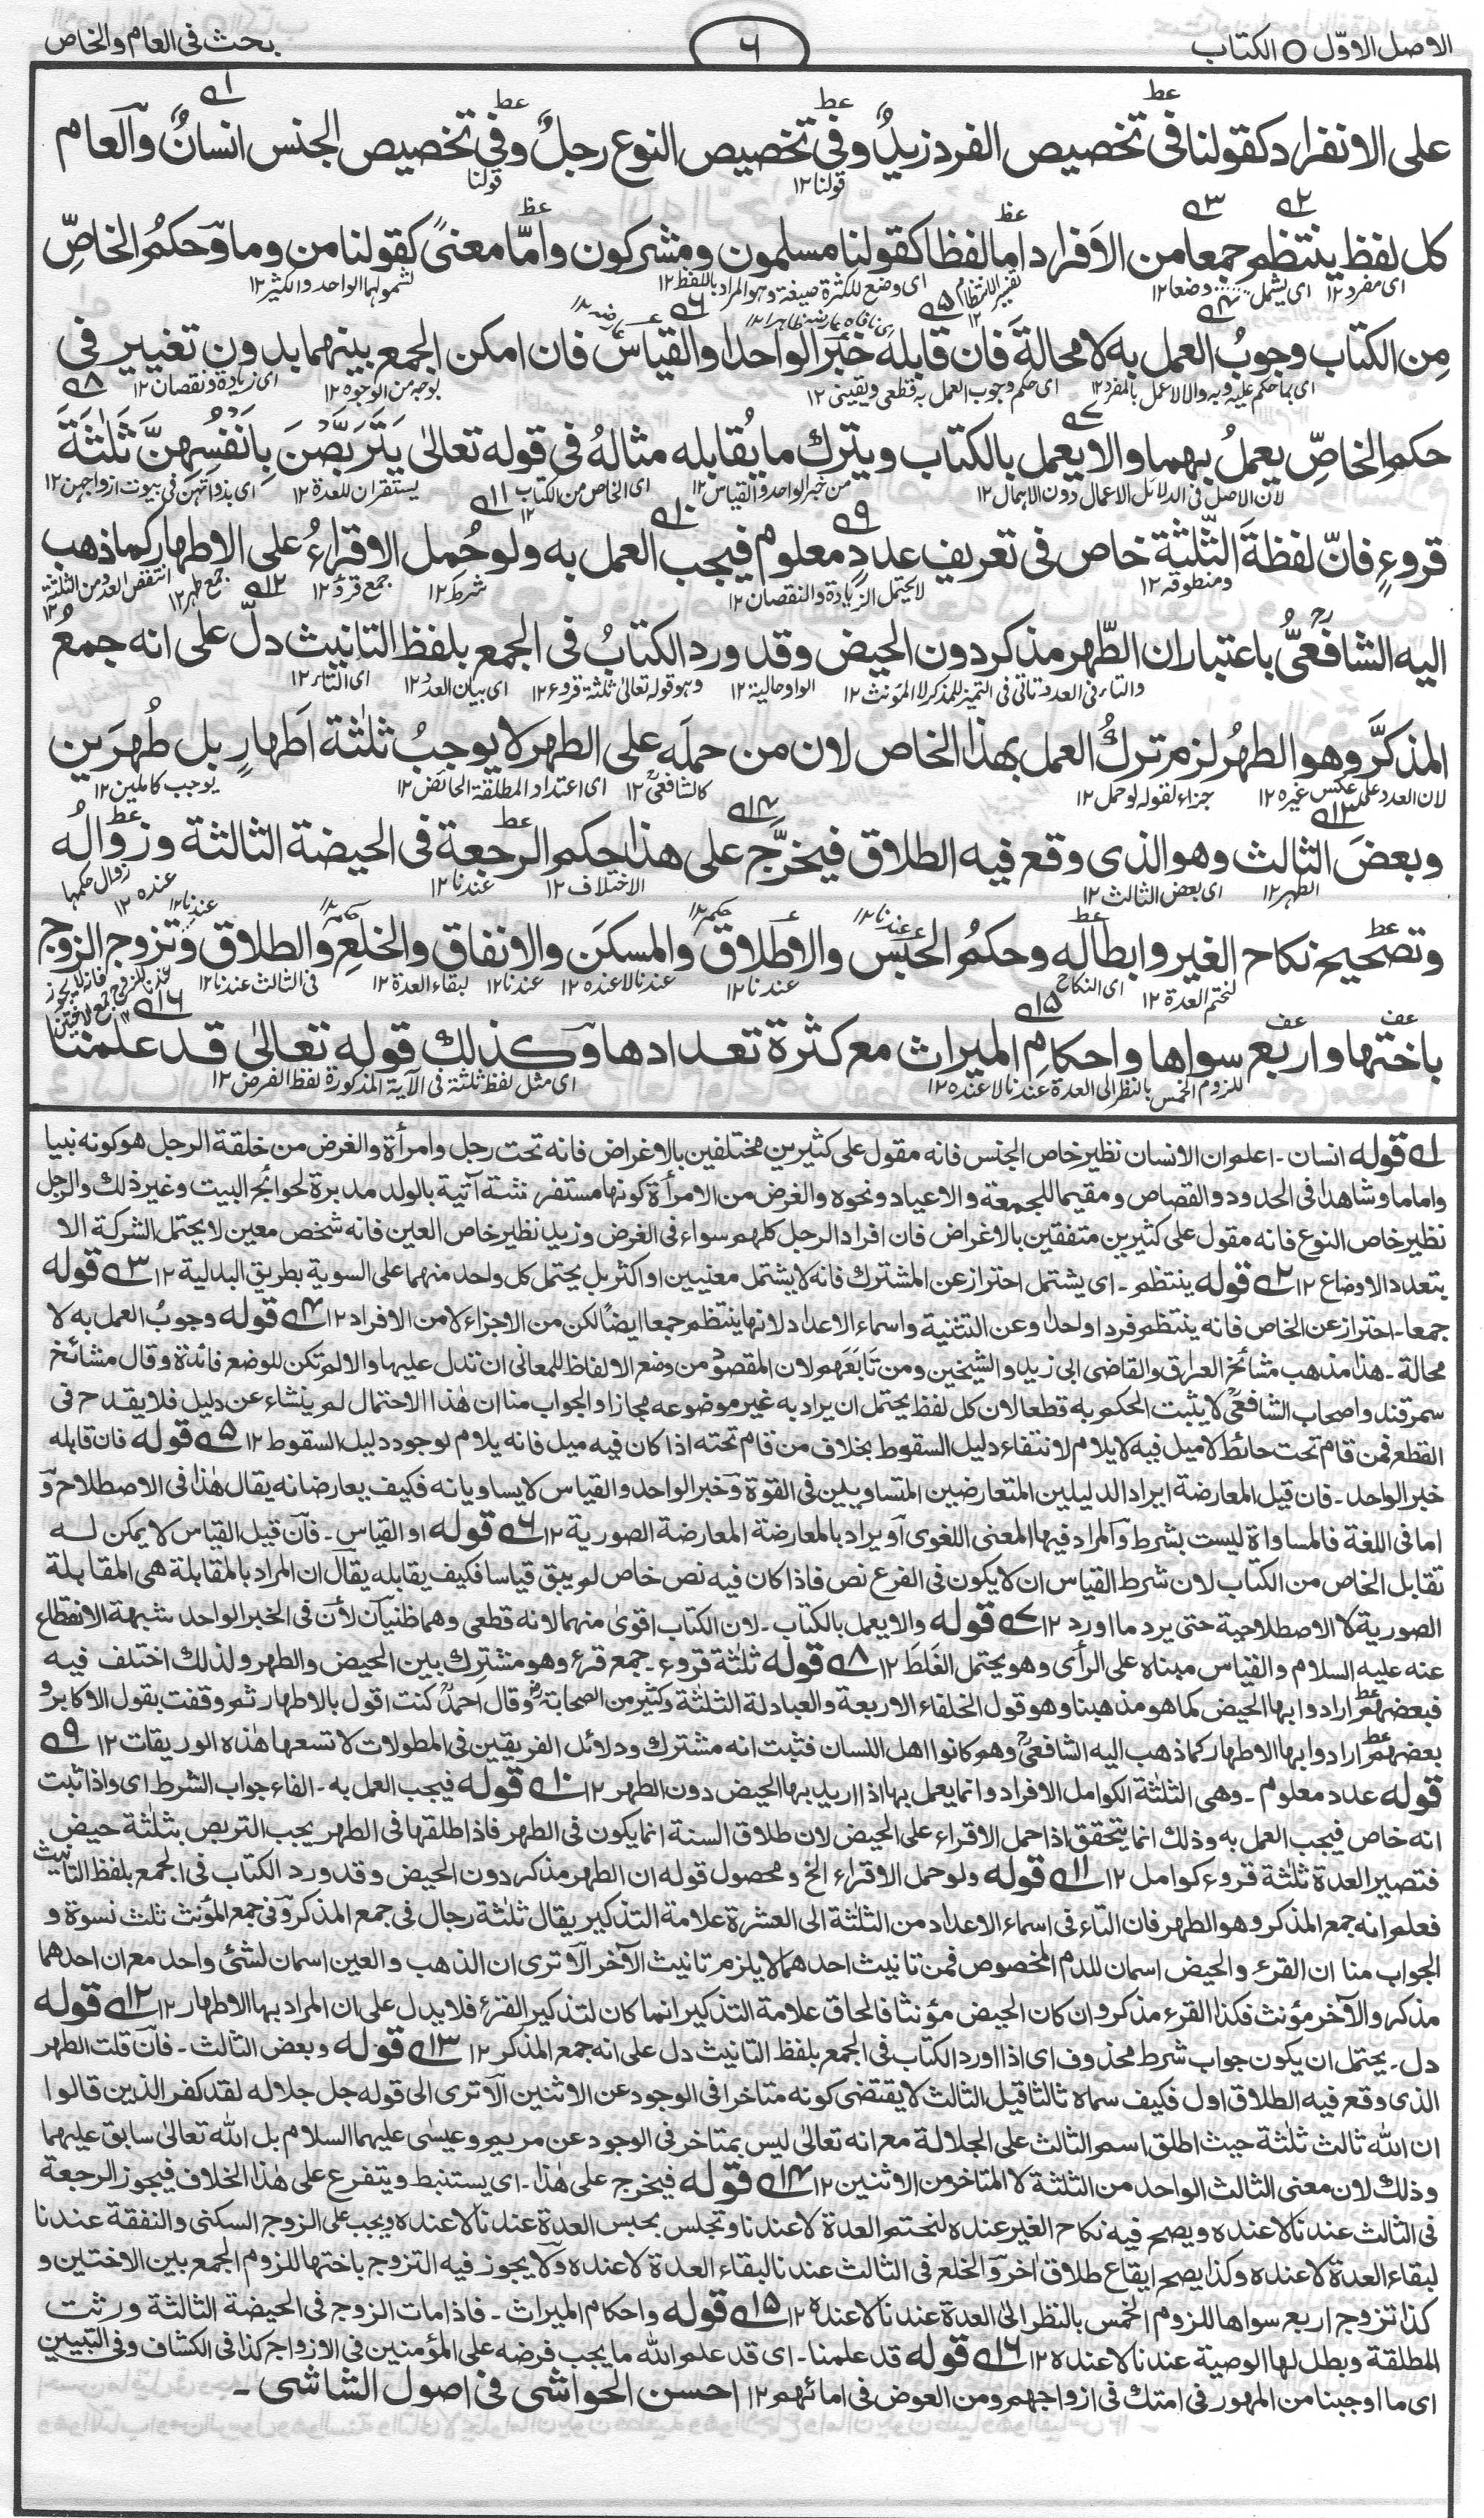 الاصل الاوّل ○ الكتاب
٦
بحث فى العام والخاص
على الانفراد كقولنا فى تخصيص الفرد زيدٌ وفى تخصيص النوع رجلٌ وفى تخصيص الجنس انسانٌ والعام
قولنا١٢ قولنا
كل لفظ ينتظم جمعا من الافراد اما لفظا كقولنا مسلمون ومشركون واما معنىً كقولنا من وما وحكمُ الخاصِّ
اى مفرد١٢ اى يشمل وضعا١٢ تفسير الانتظام١٢ اى وضع للكثرة صيغة وهو المراد باللفظ١٢ لشمولهما الواحد والكثير١٢
مِن الكتاب وجوبُ العمل به لا محالةَ فان قابله خبرُ الواحد او القياسُ فان امكن الجمع بينهما بدون تغيير فى
اى بما حكم عليه وبه والا لا عمل بالمفرد١٢ اى حكم وجوب العمل به قطعى ويقينى١٢ بوجه من الوجوه١٢ اى زيادة ونقصان١٢
حكم الخاصِّ يعملُ بهما والا يعمل بالكتاب ويترك ما يُقابله مثالهُ فى قوله تعالىٰ يَتَرَبَّصْنَ بِاَنْفُسِهِنَّ ثَلٰثَةَ
لان الاصل فى الدلائل الاعمال دون الاهمال١٢ من خبر الواحد والقياس١٢ اى الخاص من الكتاب١٢ يستقران للعدة١٢ اى بذواتهن فى بيوت ازواجهن١٢
قروءٍ فانّ لفظةَ الثّلٰثة خاص فى تعريف عددٍ معلوم فيجب العمل به ولو حُمل الاقراءُ على الاطهار كما ذهب
ومنطوقه١٢ لا يحتمل الزيادة والنقصان١٢ شرط١٢ جمع قرؤ١٢ جمع طهر١٢ انتقض العدد من الثلٰثة
اليه الشافعىُّ باعتبار ان الطّهر مذكر دون الحيض وقد ورد الكتابُ فى الجمع بلفظ التانيث دلّ على انه جمعُ
والتاء فى العدد تاتى فى التميز للمذكر لا المؤنث١٢ الواو حالية١٢ وهو قوله تعالىٰ ثلٰثة قروء١٢ اى بيان العدد١٢ اى التاء١٢
المذكَّر وهو الطهرُ لزم تركُ العمل بهذا الخاص لان من حملَه على الطهر لا يوجبُ ثلٰثة اَطهارٍ بل طُهرَين
لان العدد على عكس غيره١٢ جزاء لقوله لو حمل١٢ كالشافعىؒ١٢ اى اعتداد المطلقة الحائض١٢ يوجب كاملين١٢
وبعضَ الثالث وهو الذى وقع فيه الطلاق فيخرَّج على هذا حكم الرجعة فى الحيضة الثالثة وزوالُه
الطهر١٢ اى بعض الثالث١٢ الاختلاف١٢ عندنا١٢ عنده١٢ زوال حكمها
وتصحيح نكاح الغير وابطاله وحكمُ الحبس والاطلاق والمسكنَ والانفاق والخلعِ والطلاق وتزوج الزوج
لختم العدة١٢ اى النكاح عندنا١٢ عندنا لا عنده١٢ عندنا١٢ لبقاء العدة١٢ فى الثالث عندنا١٢
باختها واربع سواها واحكامِ الميراث مع كثرة تعدادها وكذلك قوله تعالىٰ قد علمنا
للزوم الخمس بالنظر الى العدة عندنا لا عنده١٢ اى مثل لفظ ثلثة فى الآية المذكورة لفظ الفرض١٢
١؎ قوله انسان۔ اعلم ان الانسان نظير خاص الجنس فانه مقول على كثيرين مختلفين بالاغراض فانه تحت رجل وامرأة والغرض من خلقة الرجل هو كونه نبيا
واماما وشاهدا فى الحدود والقصاص ومقيما للجمعة والاعياد ونحوه والغرض من الامرأة كونها مستفرشة آتية بالولد مدبرة لحوائج البيت وغير ذلك والرجل
نظير خاص النوع فانه مقول على كثيرين متفقين بالاغراض فان افراد الرجل كلهم سواء فى الغرض وزيد نظير خاص العين فانه شخص معين لا يحتمل الشركة الا
بتعدد الاوضاع ١٢ ٢؎ قوله ينتظم۔ اى يشتمل احتراز عن المشترك فانه لا يشتمل معنيين او اكثر بل يحتمل كل واحد منهما على السوية بطريق البدلية ١٢ ٣؎ قوله
جمعا۔ احتراز عن الخاص فانه ينتظم فردا واحدا وعن التثنية واسماء الاعداد لانها ينتظم جمعا ايضا لكن من الاجزاء لا من الافراد ١٢ ٤؎ قوله وجوبُ العمل به لا
محالة۔ هذا مذهب مشائخ العراق والقاضى ابى زيد والشيخين ومن تَابَعَهم لان المقصود من وضع الالفاظ للمعانى ان تدل عليها والا لم تكن للوضع فائدة وقال مشائخ
سمرقند واصحاب الشافعىؒ لا يثبت الحكم به قطعا لان كل لفظ يحتمل ان يراد به غير موضوعه مجازا والجواب منا ان هٰذا الاحتمال لم ينشاء عن دليل فلا يقدح فى
القطع فمن قام تحت حائط لا ميل فيه لا يلام لانتفاء دليل السقوط بخلاف من قام تحته اذا كان فيه ميل فانه يلام لوجود دليل السقوط ١٢ ٥؎ قوله فان قابله
خبر الواحد۔ فان قيل المعارضة ايراد الدليلين المتعارضين المتساويين فى القوة وخبر الواحد والقياس لا يساويانه فكيف يعارضانه يقال هٰذا فى الاصطلاح و
اما فى اللغة فالمساواة ليست بشرط والمراد فيها المعنى اللغوى او يراد بالمعارضة المعارضة الصورية ١٢ ٦؎ قوله او القياس۔ فان قيل القياس لا يمكن له
تقابل الخاص من الكتاب لان شرط القياس ان لا يكون فى الفرع نص فاذا كان فيه نص خاص لم يبق قياسا فكيف يقابله يقال ان المراد بالمقابلة هى المقابلة
الصورية لا الاصطلاحية حتى يرد ما اورد ١٢ ٧؎ قوله والا يعمل بالكتاب۔ لان الكتاب اقوىٰ منهما لانه قطعى وهما ظنيان لان فى الخبر الواحد شبهة الانقطاع
عنه عليه السلام والقياس مبناه على الرأى وهو يحتمل الغَلَطَ ١٢ ٨؎ قوله ثلٰثة قروء۔ جمع قرء وهو مشترك بين الحيض والطهر ولذلك اختلف فيه
فبعضهم ارادوا بها الحيض كما هو مذهبنا وهو قول الخلفاء الاربعة والعبادلة الثلٰثة وكثير من الصحابةؓ وقال احمدؒ كنت اقول بالاطهار ثم وقفت بقول الاكابر و
بعضهم ارادوا بها الاطهار كما ذهب اليه الشافعىؒ وهم كانوا اهل اللسان فثبت انه مشترك ودلائل الفريقين فى المطولات لا تسعها هٰذه الوريقات ١٢ ٩؎
قوله عدد معلوم۔ وهى الثلٰثة الكوامل الافراد وانما يعمل بها اذا اريد بها الحيض دون الطهر ١٢ ١٠؎ قوله فيجب العمل به۔ الفاء جواب الشرط اى واذا ثبت
انه خاص فيجب العمل به وذلك انما يتحقق اذا حمل الاقراء على الحيض لان طلاق السنة انما يكون فى الطهر فاذا طلقها فى الطهر يجب التربص بثلٰثة حيض
فتصير العدة ثلٰثة قروء كوامل ١٢ ١١؎ قوله ولو حمل الاقراء الخ ومحصول قوله ان الطهر مذكر دون الحيض وقد ورد الكتاب فى الجمع بلفظ التانيث
فعلم انه جمع المذكر وهو الطهر فان التاء فى اسماء الاعداد من الثلٰثة الى العشرة علامة التذكير يقال ثلٰثة رجال فى جمع المذكر وفى جمع المؤنث ثلث نسوة و
الجواب منا ان القرء والحيض اسمان للدم المخصوص فمن تانيث احدهما لا يلزم تانيث الآخر الا ترى ان الذهب والعين اسمان لشئ واحد مع ان احدهما
مذكر والآخر مؤنث فكذا القرء مذكر وان كان الحيض مؤنثا فالحاق علامة التذكير انما كان لتذكير القرء فلا يدل على ان المراد بها الاطهار ١٢ ١٢؎ قوله
دل۔ يحتمل ان يكون جواب شرط محذوف اى اذا اورد الكتاب فى الجمع بلفظ التانيث دل على انه جمع المذكر ١٢ ١٣؎ قوله وبعض الثالث۔ فان قلت الطهر
الذى وقع فيه الطلاق اول فكيف سماه ثالثا قيل الثالث لا يقتضى كونه متاخرا فى الوجود عن الاثنين الا ترى الى قوله جل جلاله لقد كفر الذين قالوا
ان الله ثالث ثلٰثة حيث اطلق اسم الثالث على الجلالة مع انه تعالىٰ ليس بمتاخر فى الوجود عن مريم وعيسٰى عليهما السلام بل الله تعالىٰ سابق عليهما
وذلك لان معنى الثالث الواحد من الثلٰثة لا المتاخر من الاثنين ١٢ ١٤؎ قوله فيخرج على هٰذا۔ اى يستنبط ويتفرع على هٰذا الخلاف فيجوز الرجعة
فى الثالث عندنا لا عنده ويصح فيه نكاح الغير عنده لختم العدة لا عندنا وتجلس بحبس العدة عندنا لا عنده ويجب على الزوج السكنى والنفقة عندنا
لبقاء العدة لا عنده وكذا يصح ايقاع طلاق اٰخر والخلع فى الثالث عندنا لبقاء العدة لا عنده ولا يجوز فيه التزوج باختها للزوم الجمع بين الاختين و
كذا تزوج اربع سواها للزوم الخمس بالنظر الىٰ العدة عندنا لا عنده ١٢ ١٥؎ قوله واحكام الميراث۔ فاذا مات الزوج فى الحيضة الثالثة ورثت
المطلقة وبطل لها الوصية عندنا لا عنده ١٢ ١٦؎ قوله قد علمنا۔ اى قد علم الله ما يجب فرضه على المؤمنين فى الازواج كذا فى الكشاف وفى التبيين
اى ما اوجبنا من المهور فى امتك فى ازواجهم ومن العوض فى امائهم ١٢ احسن الحواشى فى اصول الشاشى۔